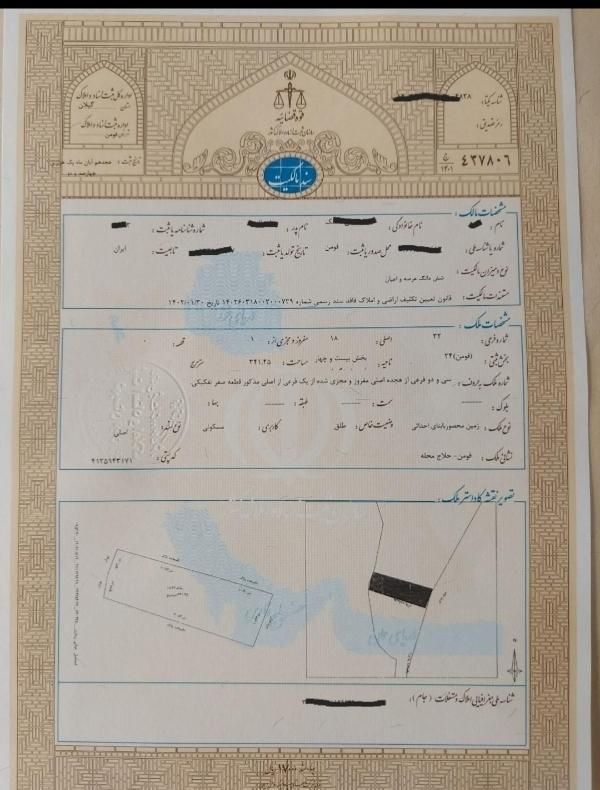 اداره کل ثبت اسناد و املاک
استان گیلان
اداره ثبت اسناد و املاک
شهرستان فومن
تاریخ ثبت : هجدهم آبان ماه یک هزار و
چهارصد و دو
قوه قضائیه
سازمان ثبت اسناد و املاک کشور
شناسه یکتا:
رمز تصدیق:
۴۳۷۸۰۶ ج ۱۴۰۱
سند مالکیت
مشخصات مالک :
نام : نام خانوادگی : نام پدر : شماره شناسنامه یا ثبت :
شماره یا شناسه ملی : محل صدور یا ثبت : فومن تاریخ تولد یا ثبت : تابعیت : ایران
نوع و میزان مالکیت : شش دانگ عرصه و اعیان
مستندات مالکیت : قانون تعیین تکلیف اراضی و املاک فاقد سند رسمی شماره ۱۴۰۲۶۰۳۱۸۰۰۲۰۰۰۷۳۹ تاریخ ۱۴۰۲/۰۱/۳۰
مشخصات ملک :
شماره فرعی : ۳۲ اصلی : ۱۸ مفروز و مجزی از : ۱ قطعه : ۰
بخش ثبتی : ۲۴(فومن) ناحیه : بخش بیست و چهار مساحت : ۳۴۱.۴۵ مترمربع
شماره ملک به حروف : سی و دو فرعی از هجده اصلی مفروز و مجزی شده از یک فرعی از اصلی مذکور قطعه صفر تفکیکی
بلوک : سمت : طبقه : بها :
نوع ملک : زمین محصور بابنای احداثی وضعیت خاص : طلق کاربری : مسکونی نوع سند : اصلی
نشانی ملک : فومن- حلاج محله کد پستی : ۴۱۳۵۹۴۳۱۷۱
تصویر نقشه کاداستر ملک :
شناسه ملی جغرافیایی املاک و مستغلات (جام) :